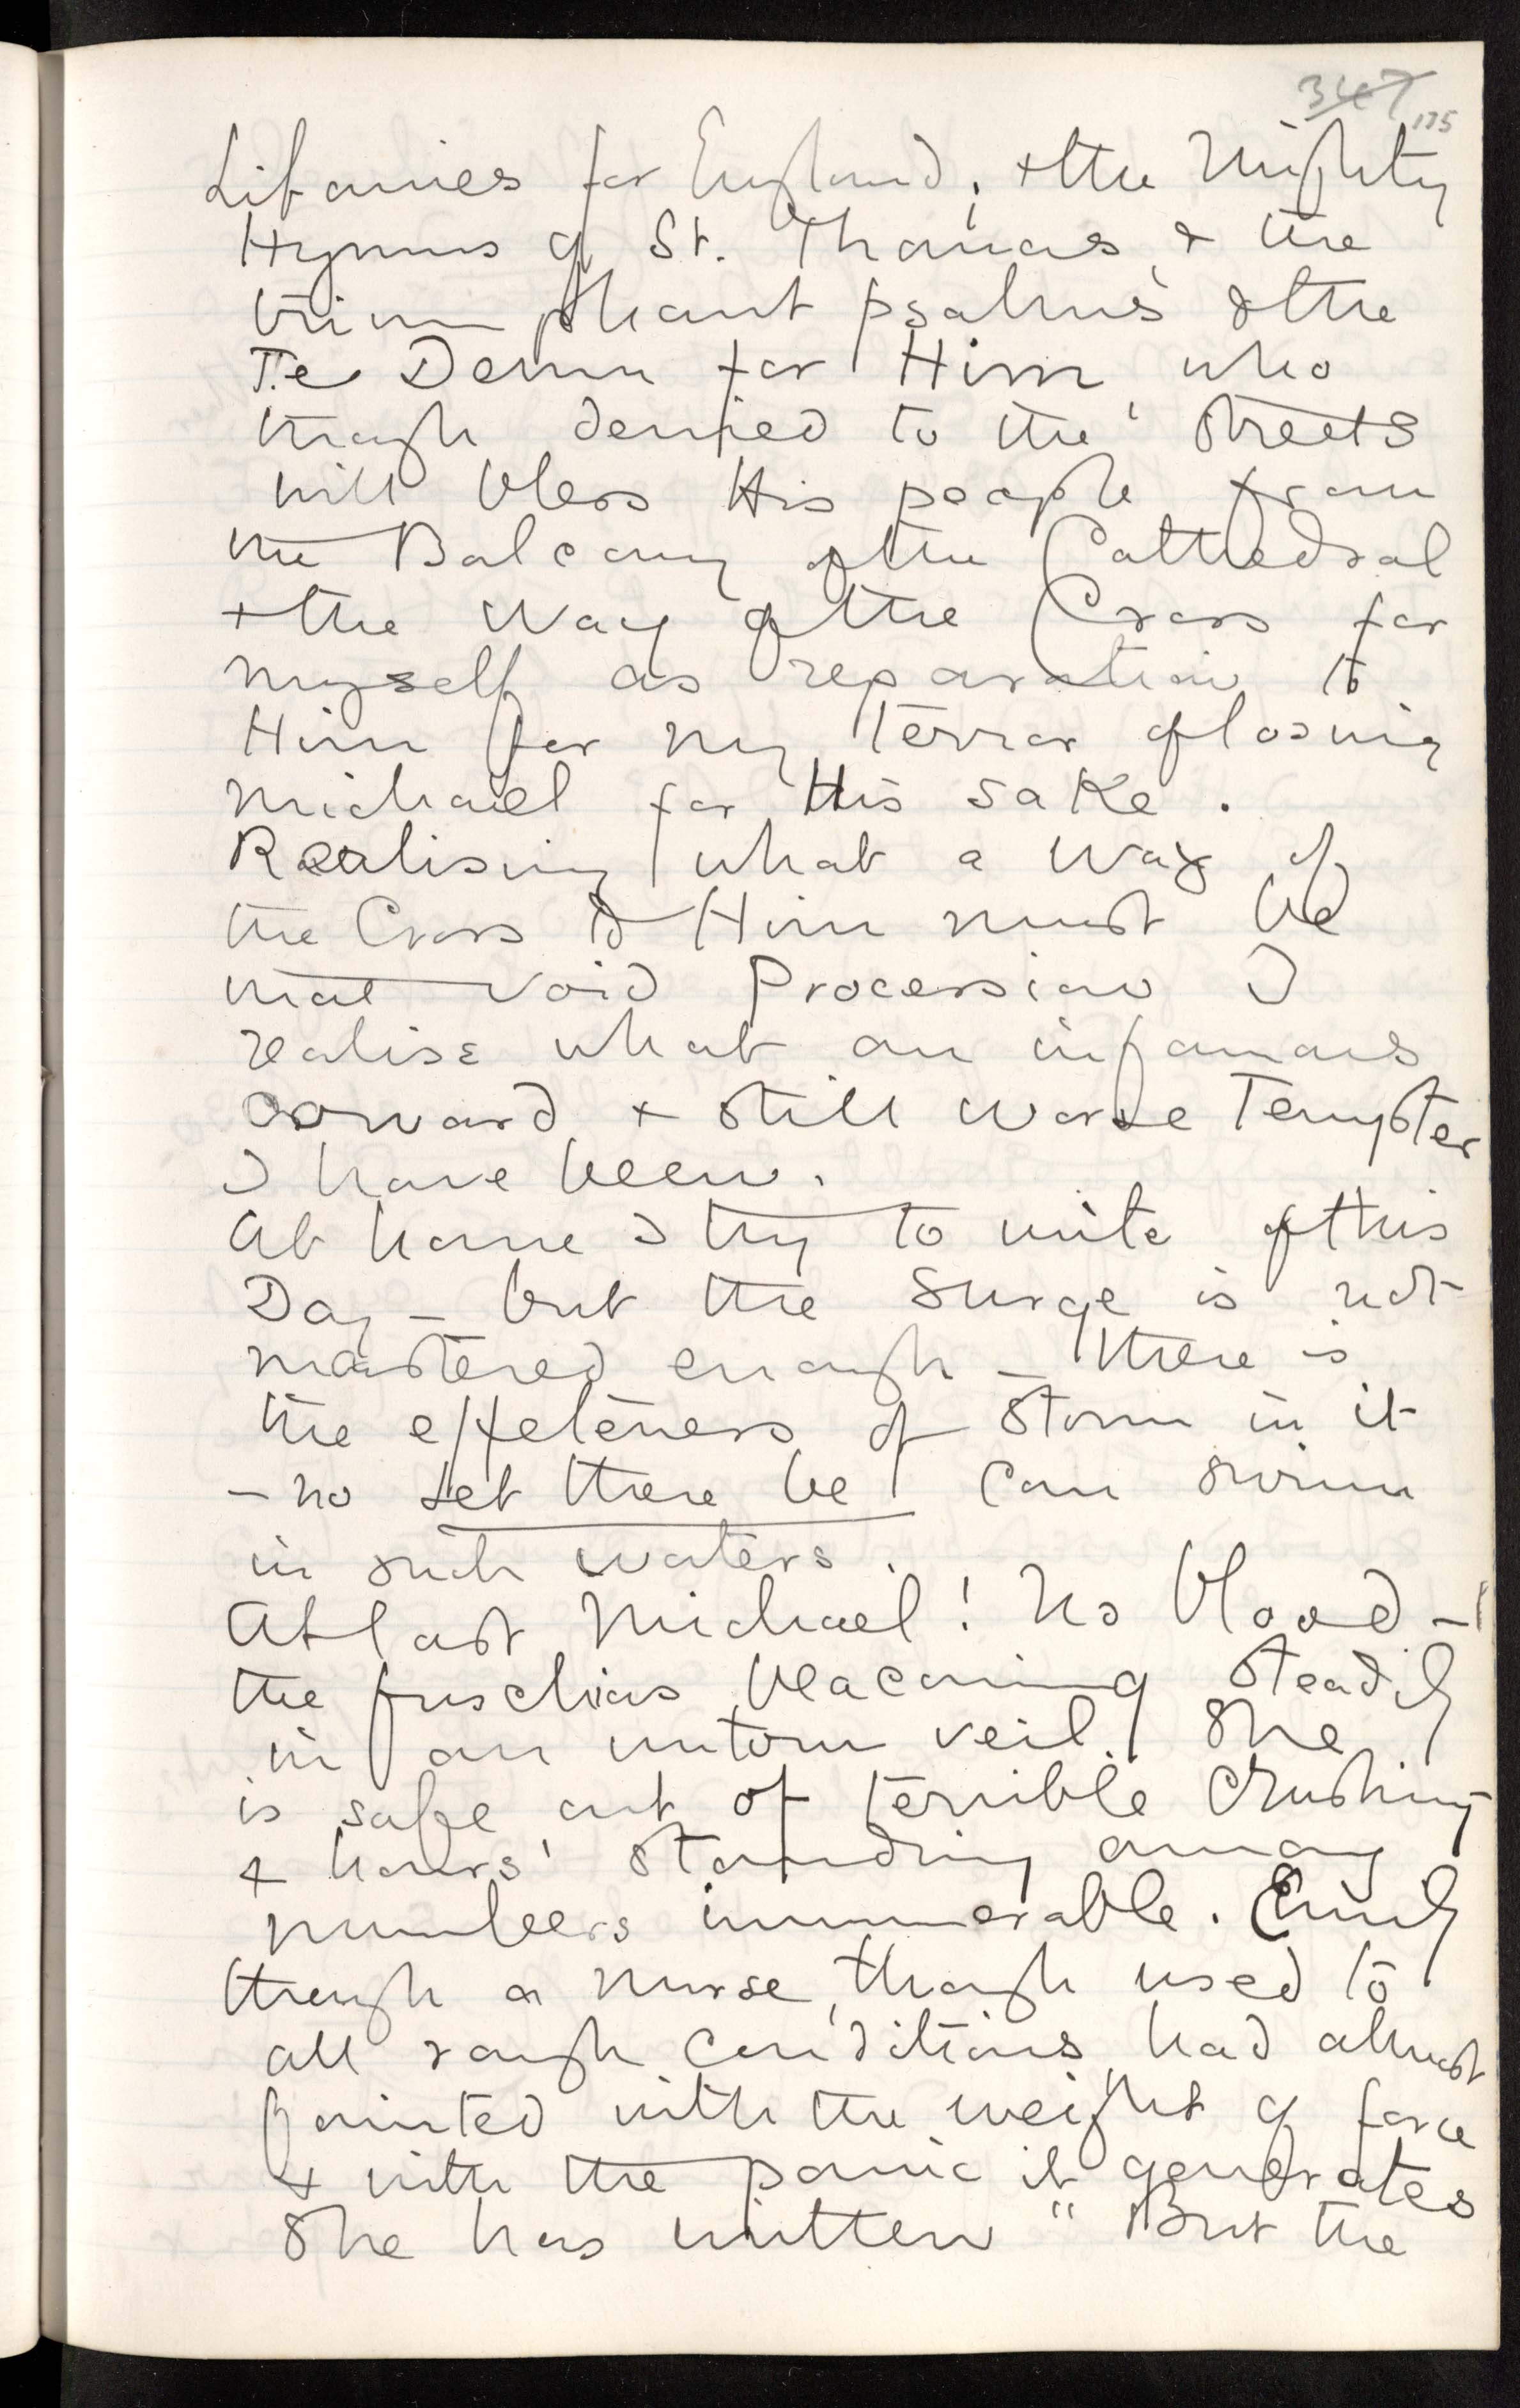 347
175
Litanies for England, + the Mighty
Hymns of St. Thomas, & the
triumphant psalms & the
Te Deum for Him, who
though denied to the streets
will bless His people from
the Balcony of the Cathedral
+ the Way of the Cross for
myself as reparation to
Him for my terror of losing
Michael for His sake.
Realising what a Way of
the Cross to Him must be
that void Procession I
realise what an infamous
coward + still worse Tempter
I have been.
At home I try to write of this
Day – but the Surge is not
mastered enough – there is
the effeteness of storm in it
– no Let there be can swim
in such waters.
At last Michael! No blood –
the fuschias beaconing steadily
in an untorn veil. She
is safe, out of terrible crushing
& hours' standing among
numbers innumerable. Emily
though a nurse, though used to
all rough conditions had almost
fainted with the weight of force
& with the panic it generates
She has written "But the